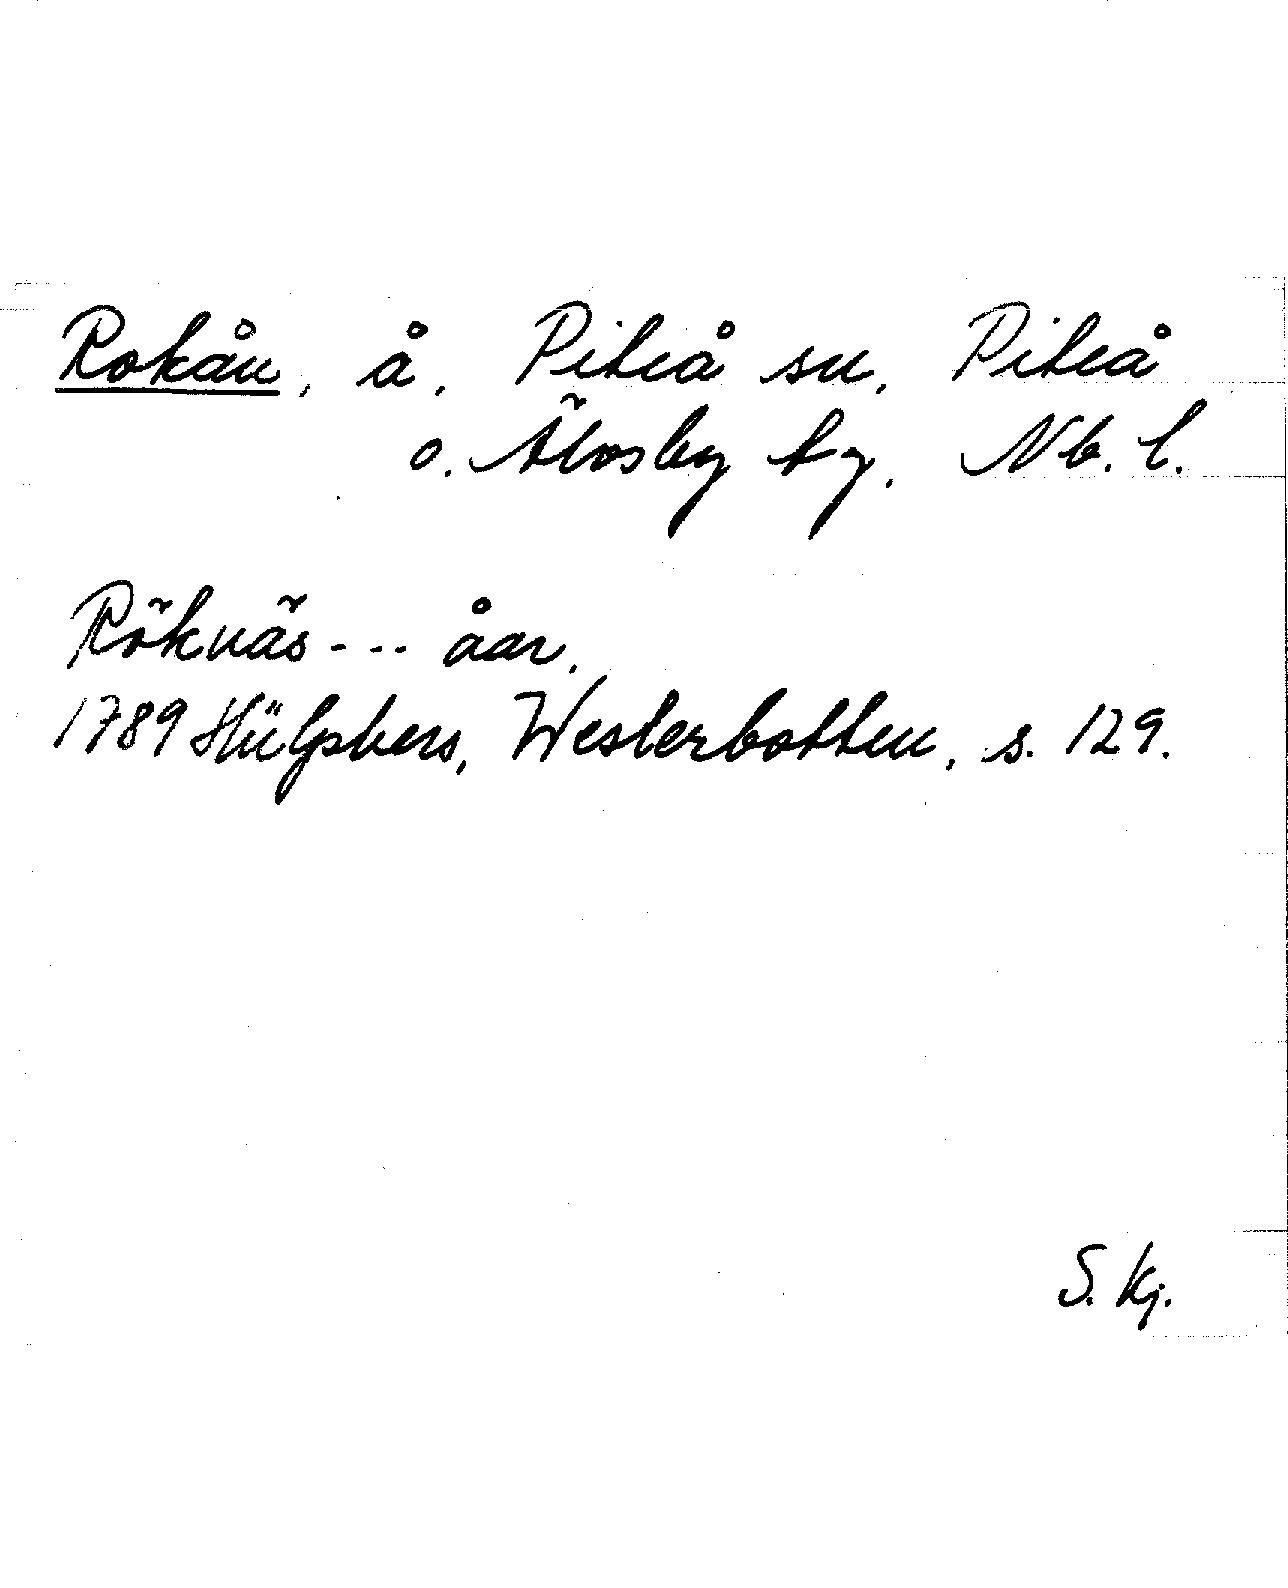 Rokån, å, Piteå sn, Piteå
o. Älvsby tg, Nb. l.
Röknäs --- åar.
1789 Hülphers, Westerbotten, s. 129.
S. Kj.